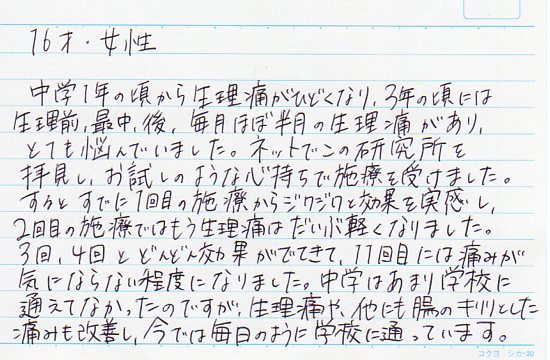 16才・女性
中学1年の頃から生理痛がひどくなり、3年の頃には
生理前、最中、後、毎月ほぼ半月の生理痛があり、
とても悩んでいました。ネットでこの研究所を
拝見し、お試しのような心持ちで施療を受けました。
するとすでに1回目の施療からジワジワと効果を実感し、
2回目の施療ではもう生理痛はだいぶ軽くなりました。
3回、4回とどんどん効果がでてきて、11回目には痛みが
気にならない程度になりました。中学はあまり学校に
通えてなかったのですが、生理痛や、他にも腸のキリッとした
痛みも改善し、今では毎日のように学校に通っています。
コクヨ シカ-20